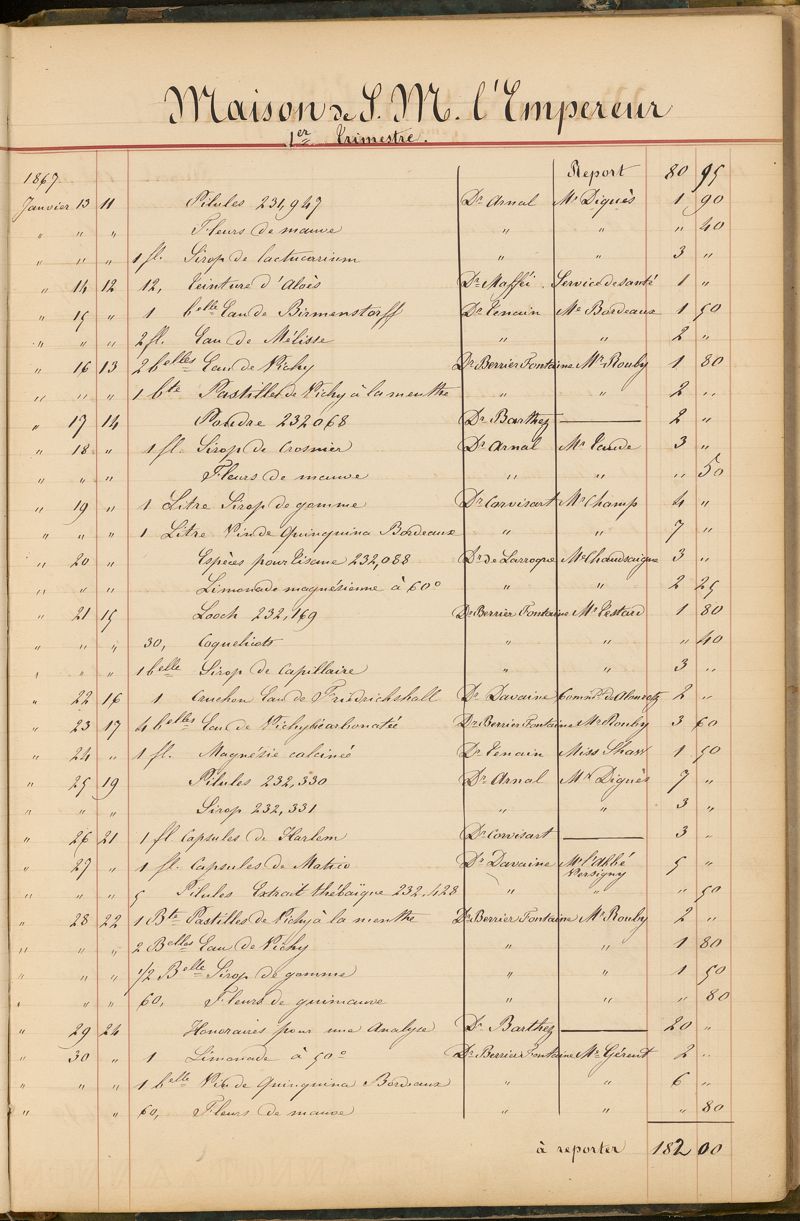 Maison de S. M. l'Empereur
1er Trimestre.
1867. Report 80 95
Janvier 13 11 Pilules 231,947 Dr Arnal Mr Diguès 1 90
" " " Fleurs de mauve " " " 40
" " " 1 fl. Sirop de lactucarium " " 3 "
" 14 12 12, Teinture d'Aloës Dr Mafféi Service de santé 1 "
" 15 " 1 belle Eau de Birmenstorff Dr Tenain Me Bordeaux 1 50
" " " 2 fl. Eau de Mélisse " " 2 "
" 16 13 2 belles Eau de Vichy Dr Berrier Fontaine Mr Rouby 1 80
" " " 1 bte Pastilles de Vichy à la menthe " " 2 "
" 17 14 Poudre 232068 Dr Barthez — 2 "
" 18 " 1 fl. Sirop de Crosnier Dr Arnal Mr Vaude 3 "
" " " Fleurs de mauve " " " 50
" 19 " 1 Litre Sirop de gomme Dr Corvisart Mr Champ 4 "
" " " 1 Litre Vin de Quinquina Bordeaux " " 7 "
" 20 " Espèces pour tisane 232,088 Dr de Larroque Me Chaudsaigue 3 "
" " " Limonade magnésienne à 60° " " 2 25
" 21 15 Looch 232,169 Dr Berrier Fontaine Mr Testard 1 80
" " " 30, Coquelicots " " " 40
" " " 1 belle Sirop de Capillaire " " 3 "
" 22 16 1 Cruchon Eau de Friedrichshall Dr Davaine 2 "
" 23 17 4 belles Eau de Vichy bicarbonatée Dr Berrier Fontaine Mr Rouby 3 60
" 24 " 1 fl. Magnésie calcinée Dr Tenain Miss Shaw 1 50
" 25 19 Pilules 232,330 Dr Arnal Mr Diguès 7 "
" " " Sirop 232,331 " " 3 "
" 26 21 1 fl. Capsules de Harlem Dr Corvisart — 3 "
" 27 " 1 fl. Capsules de Matico Dr Davaine Mr l'Abbé Versigny 5 "
" " " 5 Pilules Extrait thébaïque 232,428 " " " 50
" 28 22 1 Bte Pastilles de Vichy à la menthe Dr Berrier Fontaine Mr Rouby 2 "
" " " 2 Belles Eau de Vichy " " 1 80
" " " 1/2 Belle Sirop de gomme " " 1 50
" " " 60, Fleurs de guimauve " " " 80
" 29 24 Honoraires pour une Analyse Dr Barthez — 20 "
" 30 " 1 Limonade à 50° Dr Berrier Fontaine Mr Gérent 2 "
" " " 1 belle Vin de Quinquina Bordeaux " " 6 "
" " 60, Fleurs de mauve " " " 80
à reporter 182 00